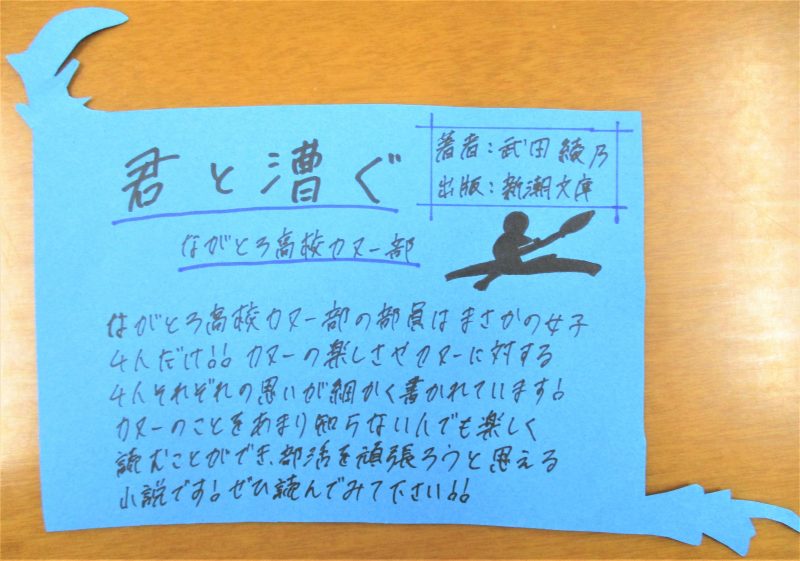 君と漕ぐ
ながとろ高校カヌー部
著者：武田綾乃
出版：新潮文庫
ながとろ高校カヌー部の部員はまさかの女子
4人だけ!! カヌーの楽しさやカヌーに対する
4人それぞれの思いが細かく書かれています!
カヌーのことをあまり知らない人でも楽しく
読むことができ、部活を頑張ろうと思える
小説です!ぜひ読んでみて下さい!!